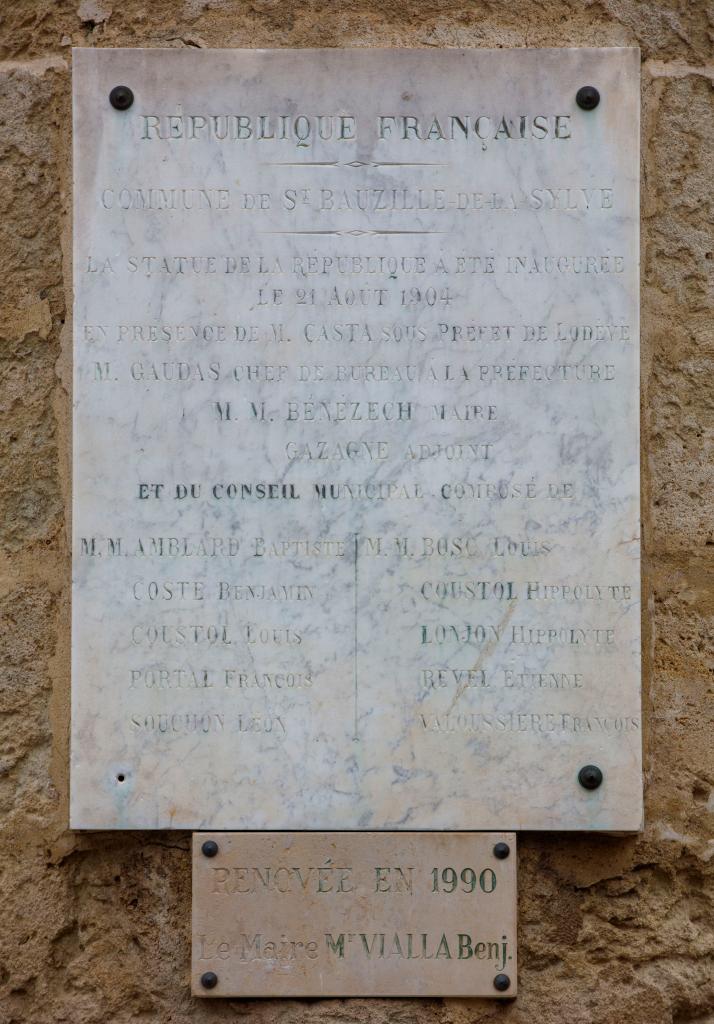 RÉPUBLIQUE FRANÇAISE
COMMUNE DE ST BAUZILLE-DE-LA-SYLVE
LA STATUE DE LA RÉPUBLIQUE A ÉTÉ INAUGURÉE
LE 21 AOUT 1904
EN PRÉSENCE DE M. CASTA SOUS PRÉFET DE LODÈVE
M. GAUDAS CHEF DE BUREAU A LA PRÉFECTURE
M. M. BÉNÉZECH MAIRE
GAZAGNE ADJOINT
ET DU CONSEIL MUNICIPAL COMPOSÉ DE
M. M. AMBLARD BAPTISTE M. M. BOSC LOUIS
COSTE BENJAMIN COUSTOL HIPPOLYTE
COUSTOL LOUIS LONJON HIPPOLYTE
PORTAL FRANÇOIS REVEL ETIENNE
SOUCHON LÉON VALOUSSIÈRE FRANÇOIS
RENOVÉE EN 1990
Le Maire Mr VIALLA Benj.